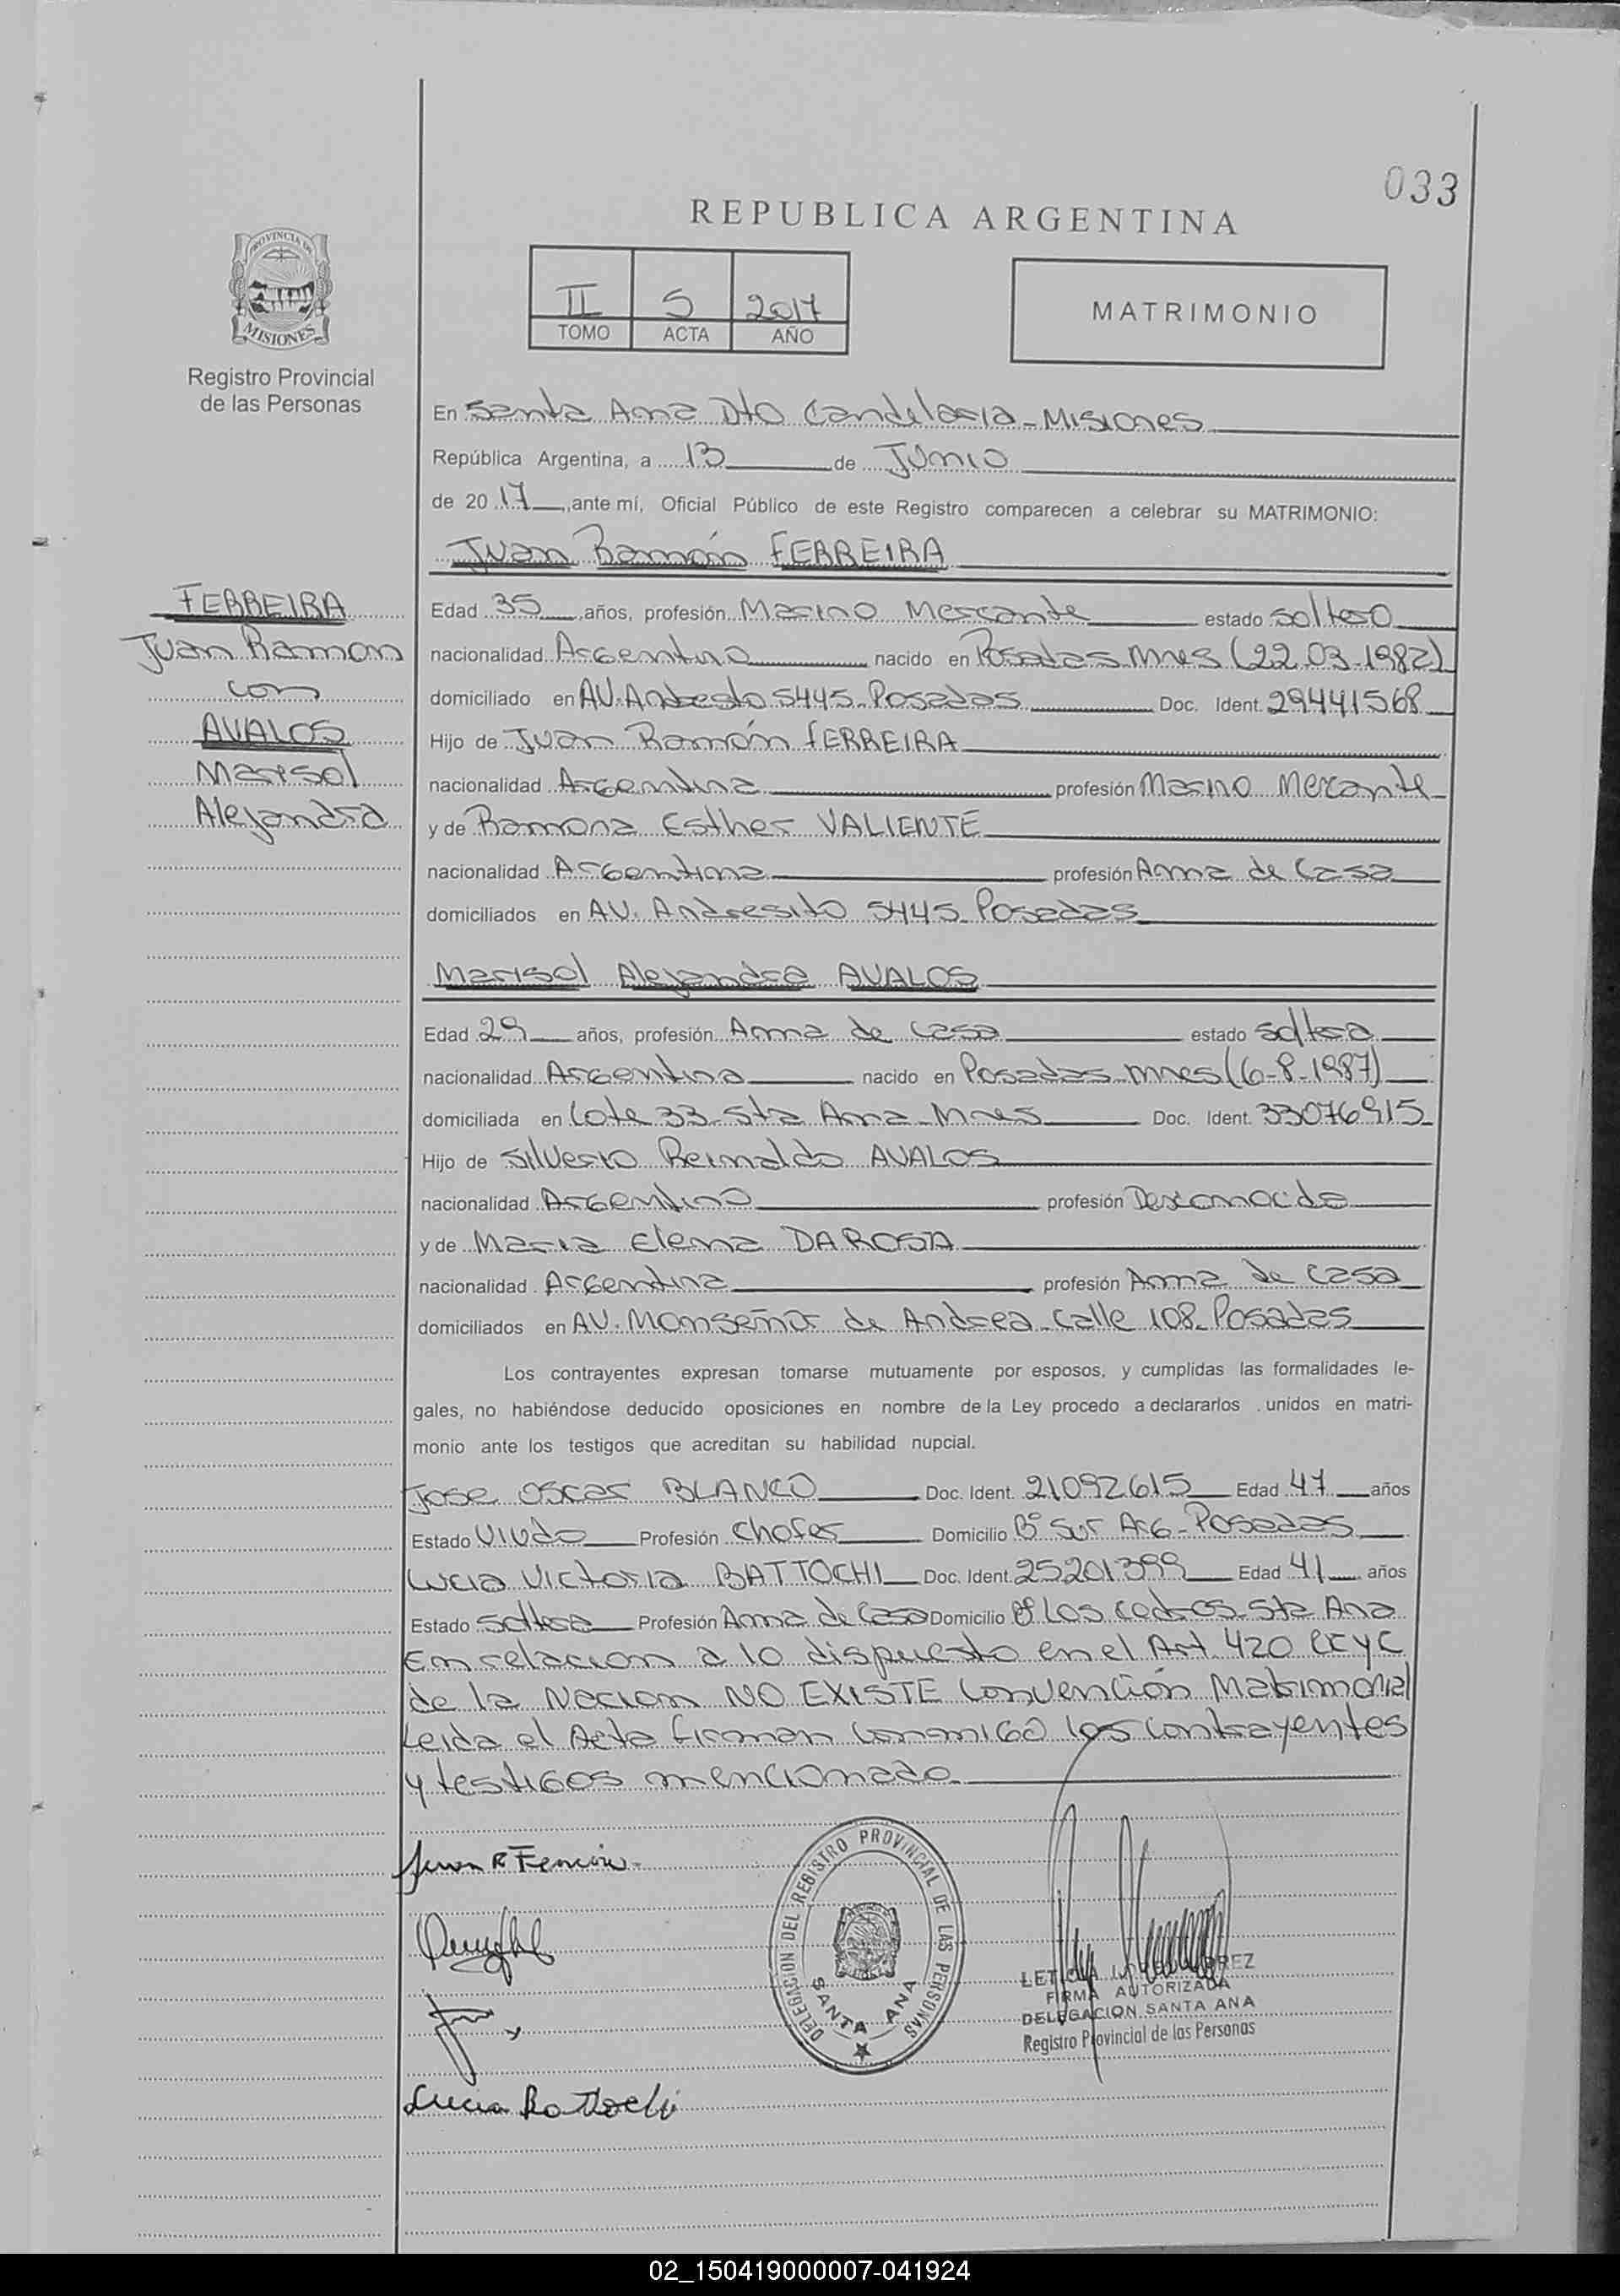 033
REPUBLICA ARGENTINA
PROVINCIA DE
MISIONES
Registro Provincial
de las Personas
II 5 2017
TOMO ACTA AÑO
MATRIMONIO
En Santa Ana Dto Candelaria - Misiones
República Argentina, a 13 de Junio
de 2017, ante mí, Oficial Público de este Registro comparecen a celebrar su MATRIMONIO:
Juan Ramón FERREIRA
FERREIRA
Juan Ramon
con
AVALOS
Marisol
Alejandra
Edad 35 años, profesión Marino Mercante estado soltero
nacionalidad Argentino nacido en Posadas Mnes (22.03.1982)
domiciliado en AV. 5445 Posadas Doc. Ident. 29441568
Hijo de Juan Ramón FERREIRA
nacionalidad Argentina profesión Marino Mercante
y de Ramona Esther VALIENTE
nacionalidad Argentina profesión Ama de Casa
domiciliados en AV. Andresito 5445 Posadas
Marisol Alejandra AVALOS
Edad 29 años, profesión Ama de Casa estado soltera
nacionalidad Argentina nacido en Posadas Mnes (6-8-1987)
domiciliada en Lote 33 Sta Ana - Mnes Doc. Ident. 33076915
Hijo de Silverio Reinaldo AVALOS
nacionalidad Argentino profesión
y de Maria Elena DAROSA
nacionalidad Argentina profesión Ama de Casa
domiciliados en AV. Monseñor de Andrea Calle 108 Posadas
Los contrayentes expresan tomarse mutuamente por esposos, y cumplidas las formalidades le-
gales, no habiéndose deducido oposiciones en nombre de la Ley procedo a declararlos unidos en matri-
monio ante los testigos que acreditan su habilidad nupcial.
Jose Oscar BLANCO Doc. Ident. 21092615 Edad 47 años
Estado Viudo Profesión Chofer Domicilio Bº Sur Arg - Posadas
Lucia Victoria BATTOCHI Doc. Ident. 25201399 Edad 41 años
Estado Soltera Profesión Ama de Casa Domicilio Bº Los Cedros Sta Ana
En relacion a lo dispuesto en el Art. 420 CCyC
de la Nacion NO EXISTE Convención Matrimonial
Leida el Acta firman conmigo los contrayentes
y testigos mencionado
Juan R Ferreira
DELEGACION DEL REGISTRO PROVINCIAL DE LAS PERSONAS
SANTA ANA
FIRMA AUTORIZADA
DELEGACION SANTA ANA
Registro Provincial de las Personas
Lucia Battochi
02_150419000007-041924